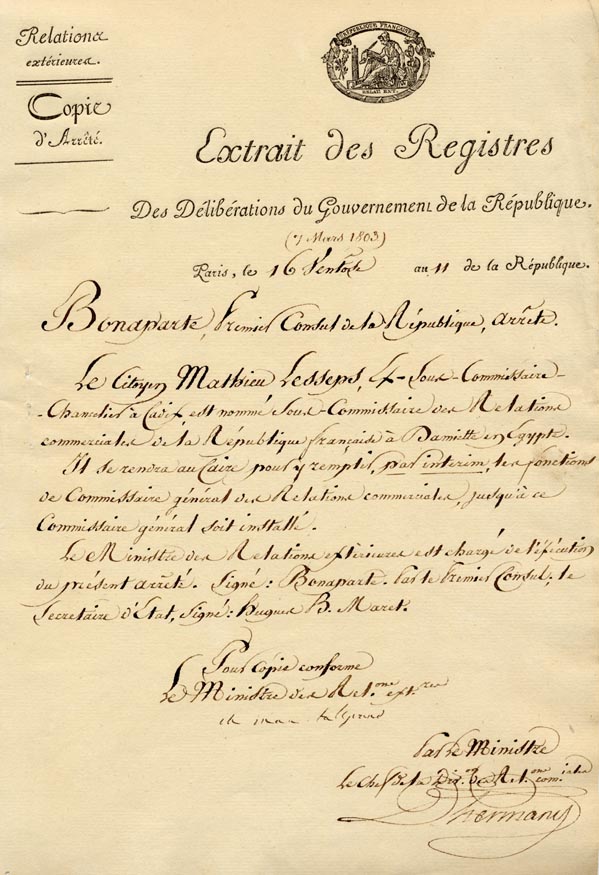 Relations
extérieures.
Copie
d'Arrêté.
RÉPUBLIQUE FRANÇAISE
RELAT. EXT.
Extrait des Registres
Des Délibérations du Gouvernement de la République.
(7 Mars 1803)
Paris, le 16 Ventôse au 11 de la République.
Bonaparte, Premier Consul de la République, arrête.
Le Citoyen Mathieu Lesseps, Ex-Sous-Commissaire-
-Chancelier à Cadix est nommé Sous-Commissaire des Relations
commerciales de la République française à Damiette en Egypte.
Il se rendra au Caire pour y remplir, par intérim, les fonctions
de Commissaire général des Relations commerciales, jusqu'à ce
Commissaire général soit installé.
Le Ministre des Relations extérieures est chargé de l'exécution
du présent arrêté. Signé: Bonaparte. Par le Premier Consul, le
Secretaire d'Etat, Signé: Hugues B. Maret.
Pour Copie conforme
Le Ministre des Relons extres
Par le Ministre
Le Chef de la Divon des Relons comciales
D'hermand